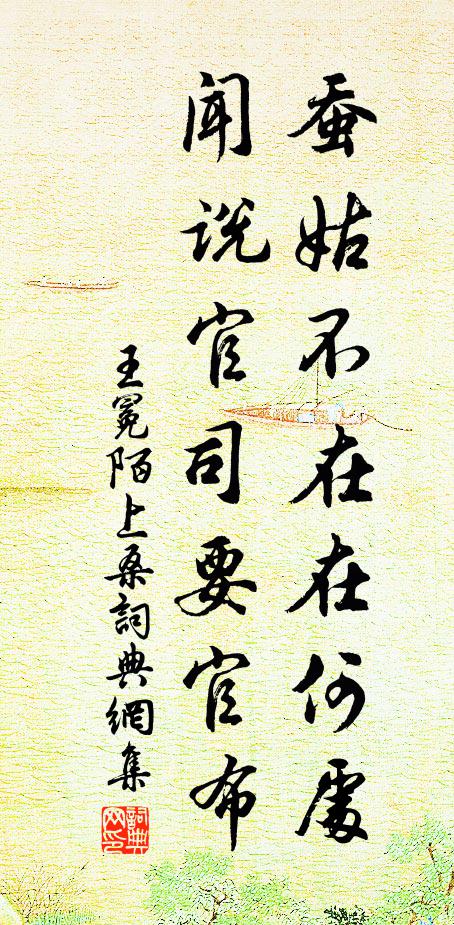 蚕姑不在在何處
闻说官司要官布
王冕陌上桑詞典網集
詞典網印